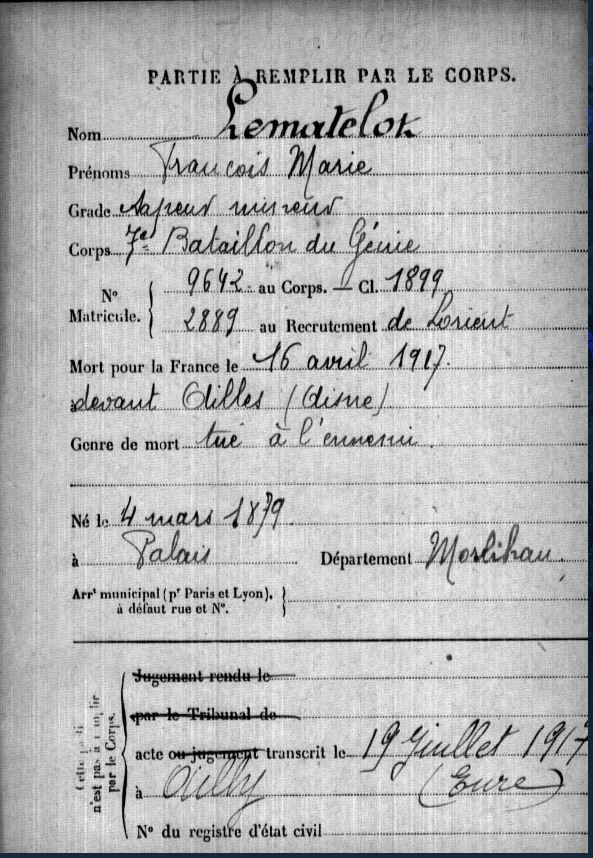 PARTIE À REMPLIR PAR LE CORPS.
Nom Lematelot
Prénoms François Marie
Grade Sapeur mineur
Corps 7e Bataillon du Génie
N° Matricule. { 9642 au Corps. — Cl. 1899
2889 au Recrutement de Lorient
Mort pour la France le 16 avril 1917.
devant Ailles (Aisne)
Genre de mort tué à l'ennemi.
Né le 4 mars 1879.
à Palais Département Morbihan.
Arrt municipal (pr Paris et Lyon), }
à défaut rue et N°. }
Cette partie
n'est pas à remplir
par le Corps.
Jugement rendu le
par le Tribunal de
acte ou jugement transcrit le 19 Juillet 1917
à Ailly (Eure)
N° du registre d'état civil